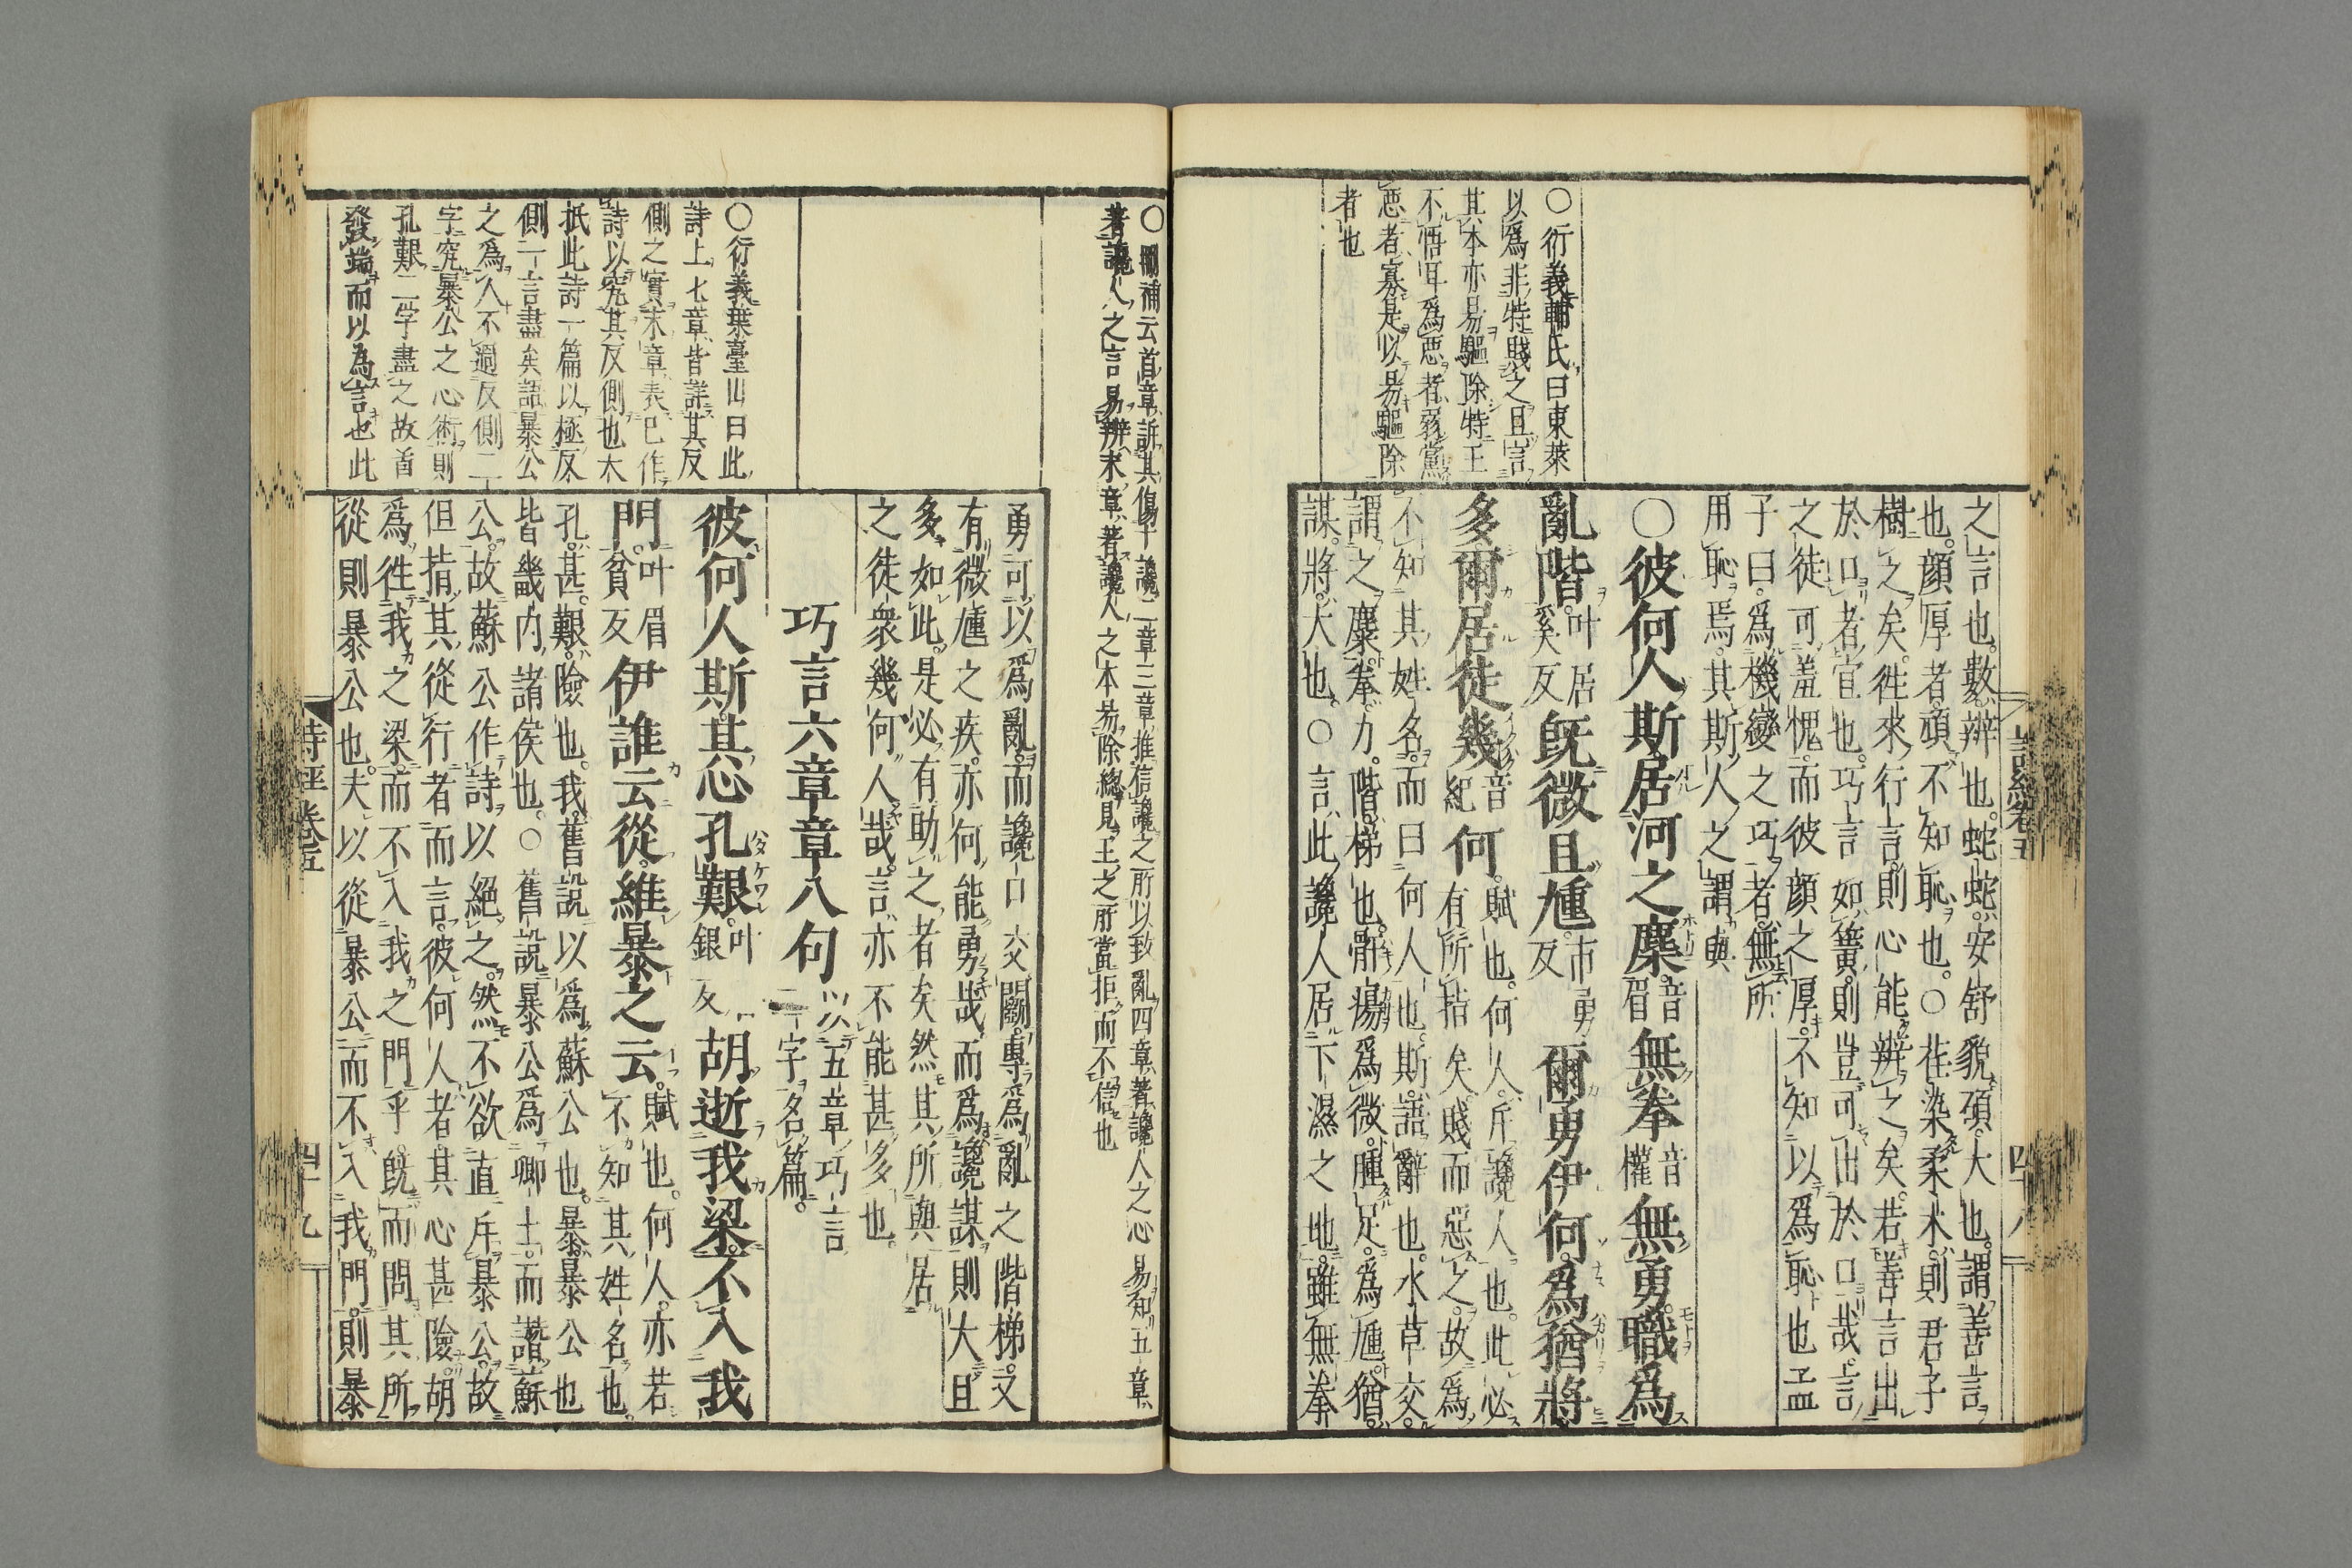 詩經卷五
四十八
之言也。數。辨也。蛇蛇。安舒貌。碩。大也。謂善言
也。顏厚者。頑不知恥也。○荏染柔木。則君子
樹之矣。往來行言。則心能辨之矣。若善言出
於口者。宜也。巧言如簧。則豈可出於口哉。言
之徒可羞愧。而彼顏之厚。不知以為恥也孟
子曰。為機變之巧者。無所
用恥焉。其斯人之謂與
○彼何人斯。居河之麋。音眉無拳音權無勇。職為
亂階。叶居奚反既微且尰。市勇反爾勇伊何。為猶將
多。爾居徒幾音紀何。賦也。何人。斥讒人也。此必有所指矣。賤而惡之。故為
不知其姓名。而曰何人也。斯。語辭也。水草交。
謂之麋。拳。力。階。梯也。骭瘍為微。腫足。為尰。猶。
謀。將。大也。○言此讒人居下濕之地。雖無拳
○衍義輔氏曰東萊
以為非特賤之且言
其本亦易驅除特王
不悟耳為惡者弱黨
惡者寡是以易驅除
者也
○刪補云首章訴其傷于讒二章三章推信讒之所以致亂四章著讒人之心易知五章
著讒人之言易辨末章著讒人之本易除總見王之所當拒而不信也
勇可以為亂。而讒口交鬬。專為亂之階梯。又
有微尰之疾。亦何能勇哉。而為讒謀則大且
多如此。是必有助之者矣然其所與居
之徒衆幾何人哉。言亦不能甚多也。
巧言六章章八句以五章巧言二字名篇。
彼何人斯。其心孔艱。叶銀反胡逝我梁。不入我
門。叶眉貧反伊誰云從。維暴之云。賦也。何人。亦若不知其姓名也。
孔。甚。艱。險也。我。舊說以為蘇公也。暴。暴公也
皆畿内諸侯也。○舊說暴公為卿士。而譖蘇
公。故蘇公作詩以絕之。然不欲直斥暴公。故
但指其從行者而言。彼何人者其心甚險。胡
為往我之梁。而不入我之門乎。既而問其所
從則暴公也。夫以從暴公而不入我門。則暴
○衍義葉臺山曰此
詩上七章皆詳其反
側之實末章表已作
詩以究其反側也木
抵此詩一篇以極反
側一言盡矣語暴公
之為人不過反側二
字究暴公之心術則
孔艱二字盡之故首
發端而以為言也此
詩經卷五
四十九